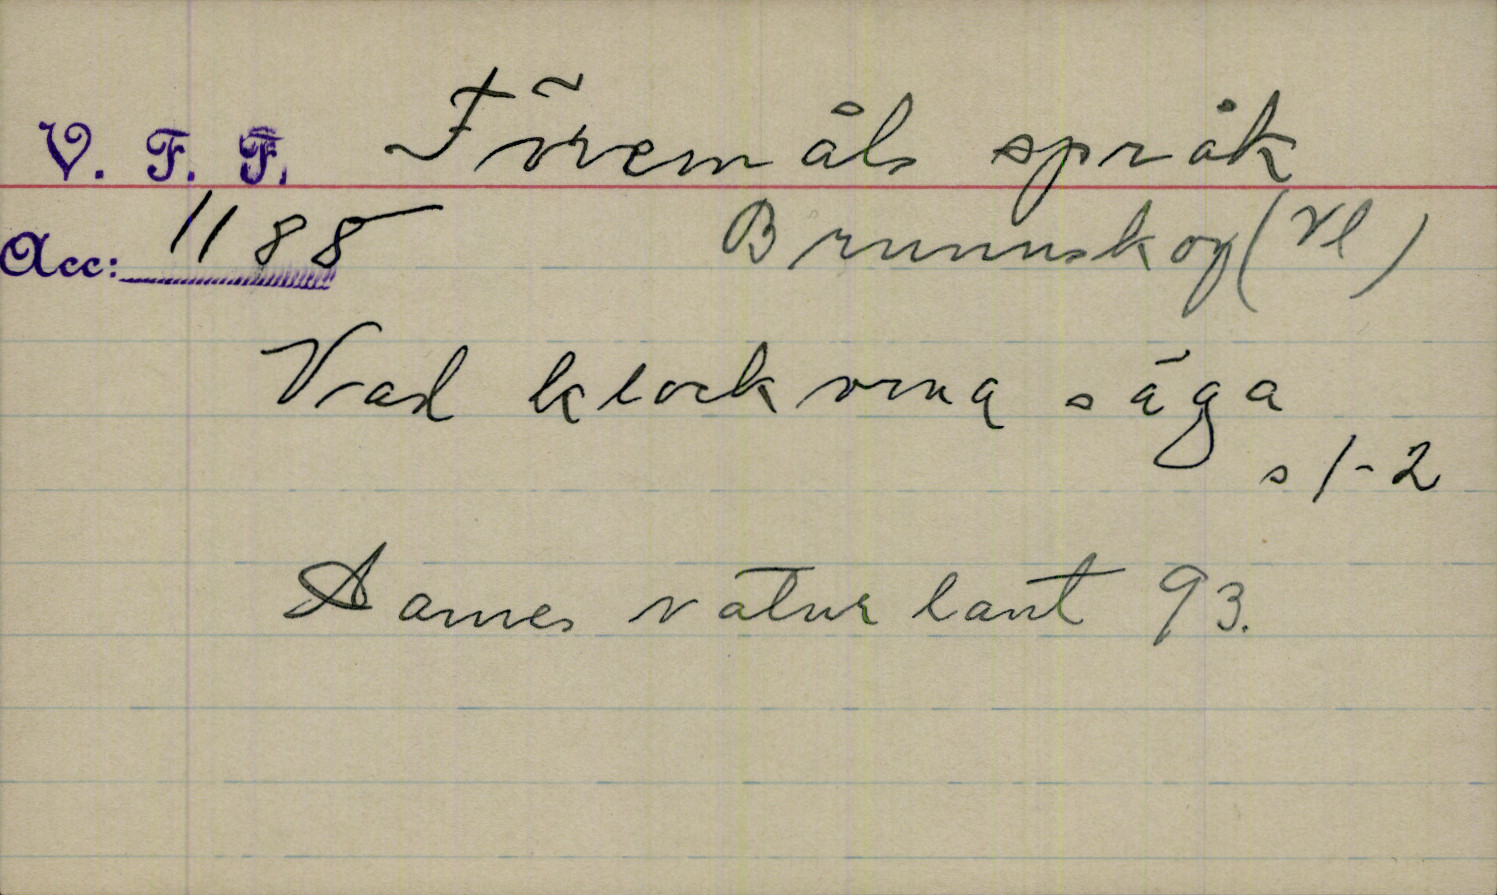 V. F. F. Föremåls språk
Acc: 1188 Brunnskog (Vl)
Vad klockorna säga
s 1-2
Aarnes naturlaut 93.